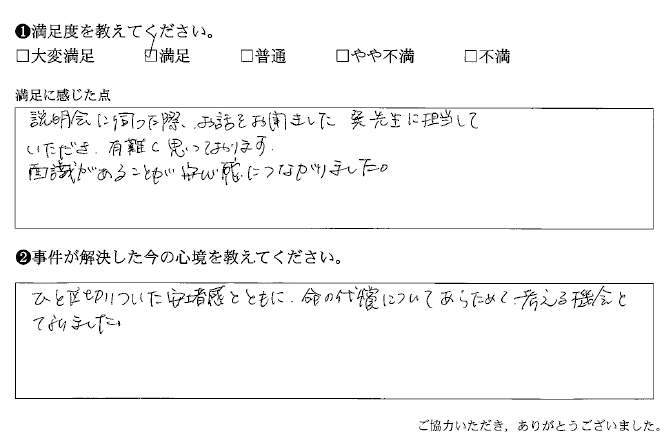 ❶満足度を教えてください。
□大変満足 ☑満足 □普通 □やや不満 □不満
満足に感じた点
説明会に伺った際、お話をお聞きました 先生に担当して
いただき、有難く思っております。
面識があることが安心感につながりました。
❷事件が解決した今の心境を教えてください。
ひと区切りついた安堵感とともに、命の代償についてあらためて考える機会と
なりました。
ご協力いただき，ありがとうございました。